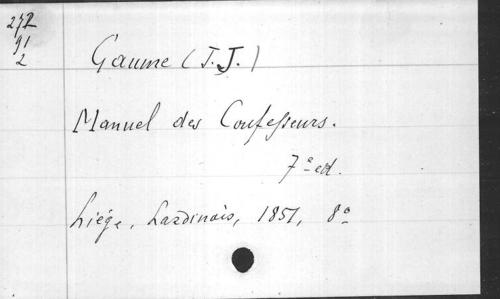 272
91
2
Gaume (J. J.)
Manuel des Confesseurs.
7e ed.
Liége, Lardinois, 1851, 8o